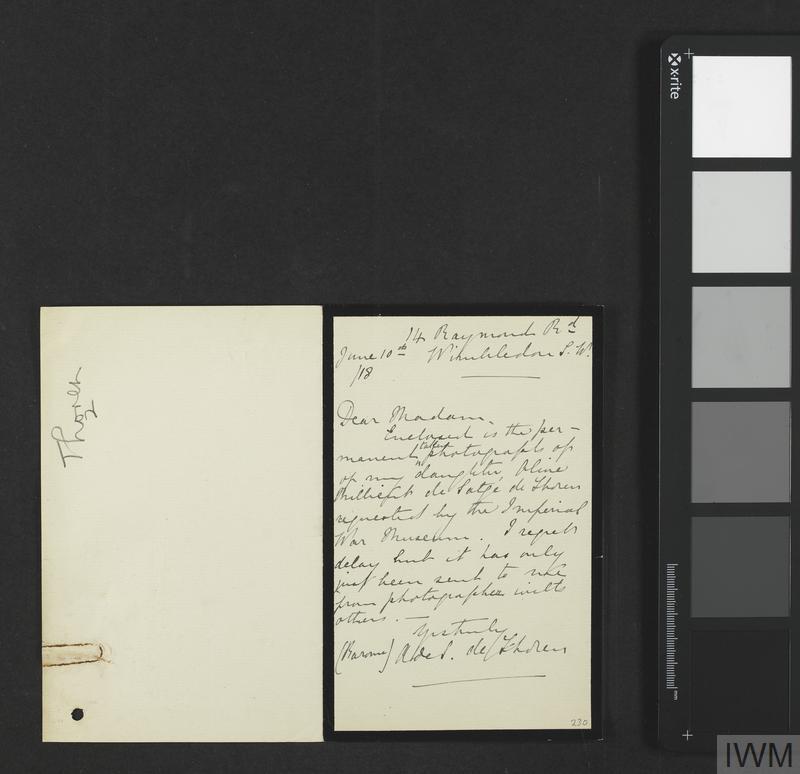 Thoren
2
14 Raymond Rd
June 10th Wimbledon S. W.
/18
Dear Madam,
Enclosed is the per-
manent taken photograph of
of my daughter Olive
de Satgé de Thoren
requested by the Imperial
War Museum. I regret
delay but it has only
just been sent to me
from photographer with
others. —
Yrs truly
(Baronne) A de S. de Thoren
230
x-rite
mm
IWM